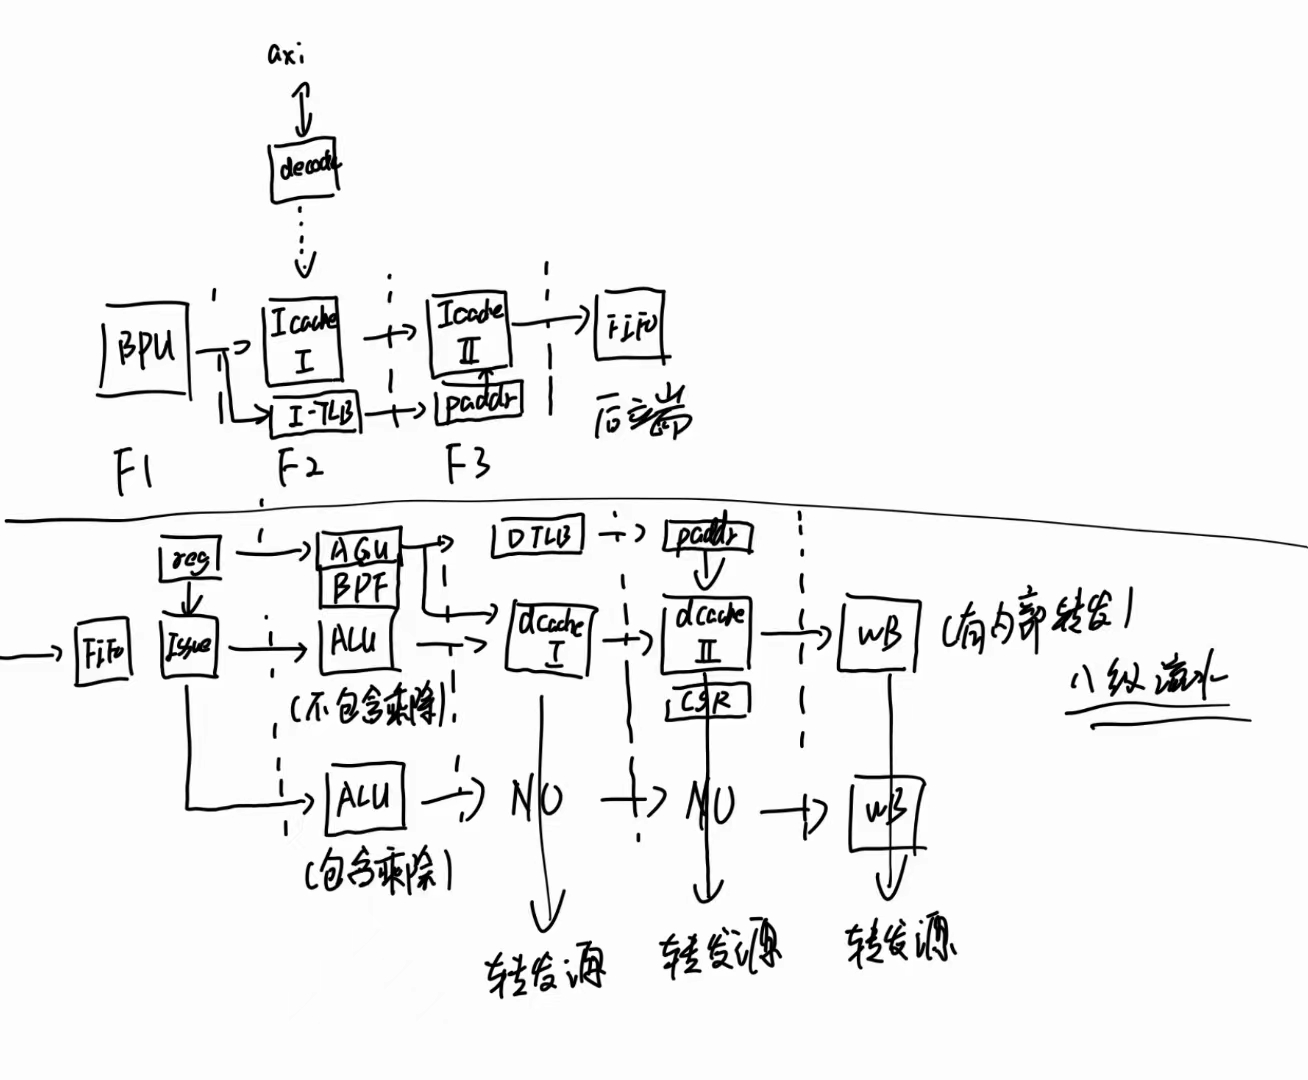 axi
decode
BPU
Icache
I
I-TLB
Icache
II
paddr
FIFO
后端
F1
F2
F3
reg
AGU
BPF
DTLB
paddr
FIFO
Issue
ALU
(不包含乘除)
dcache
I
dcache
II
CSR
WB
(有内部转发)
八级流水
ALU
(包含乘除)
NO
NO
WB
转发源
转发源
转发源